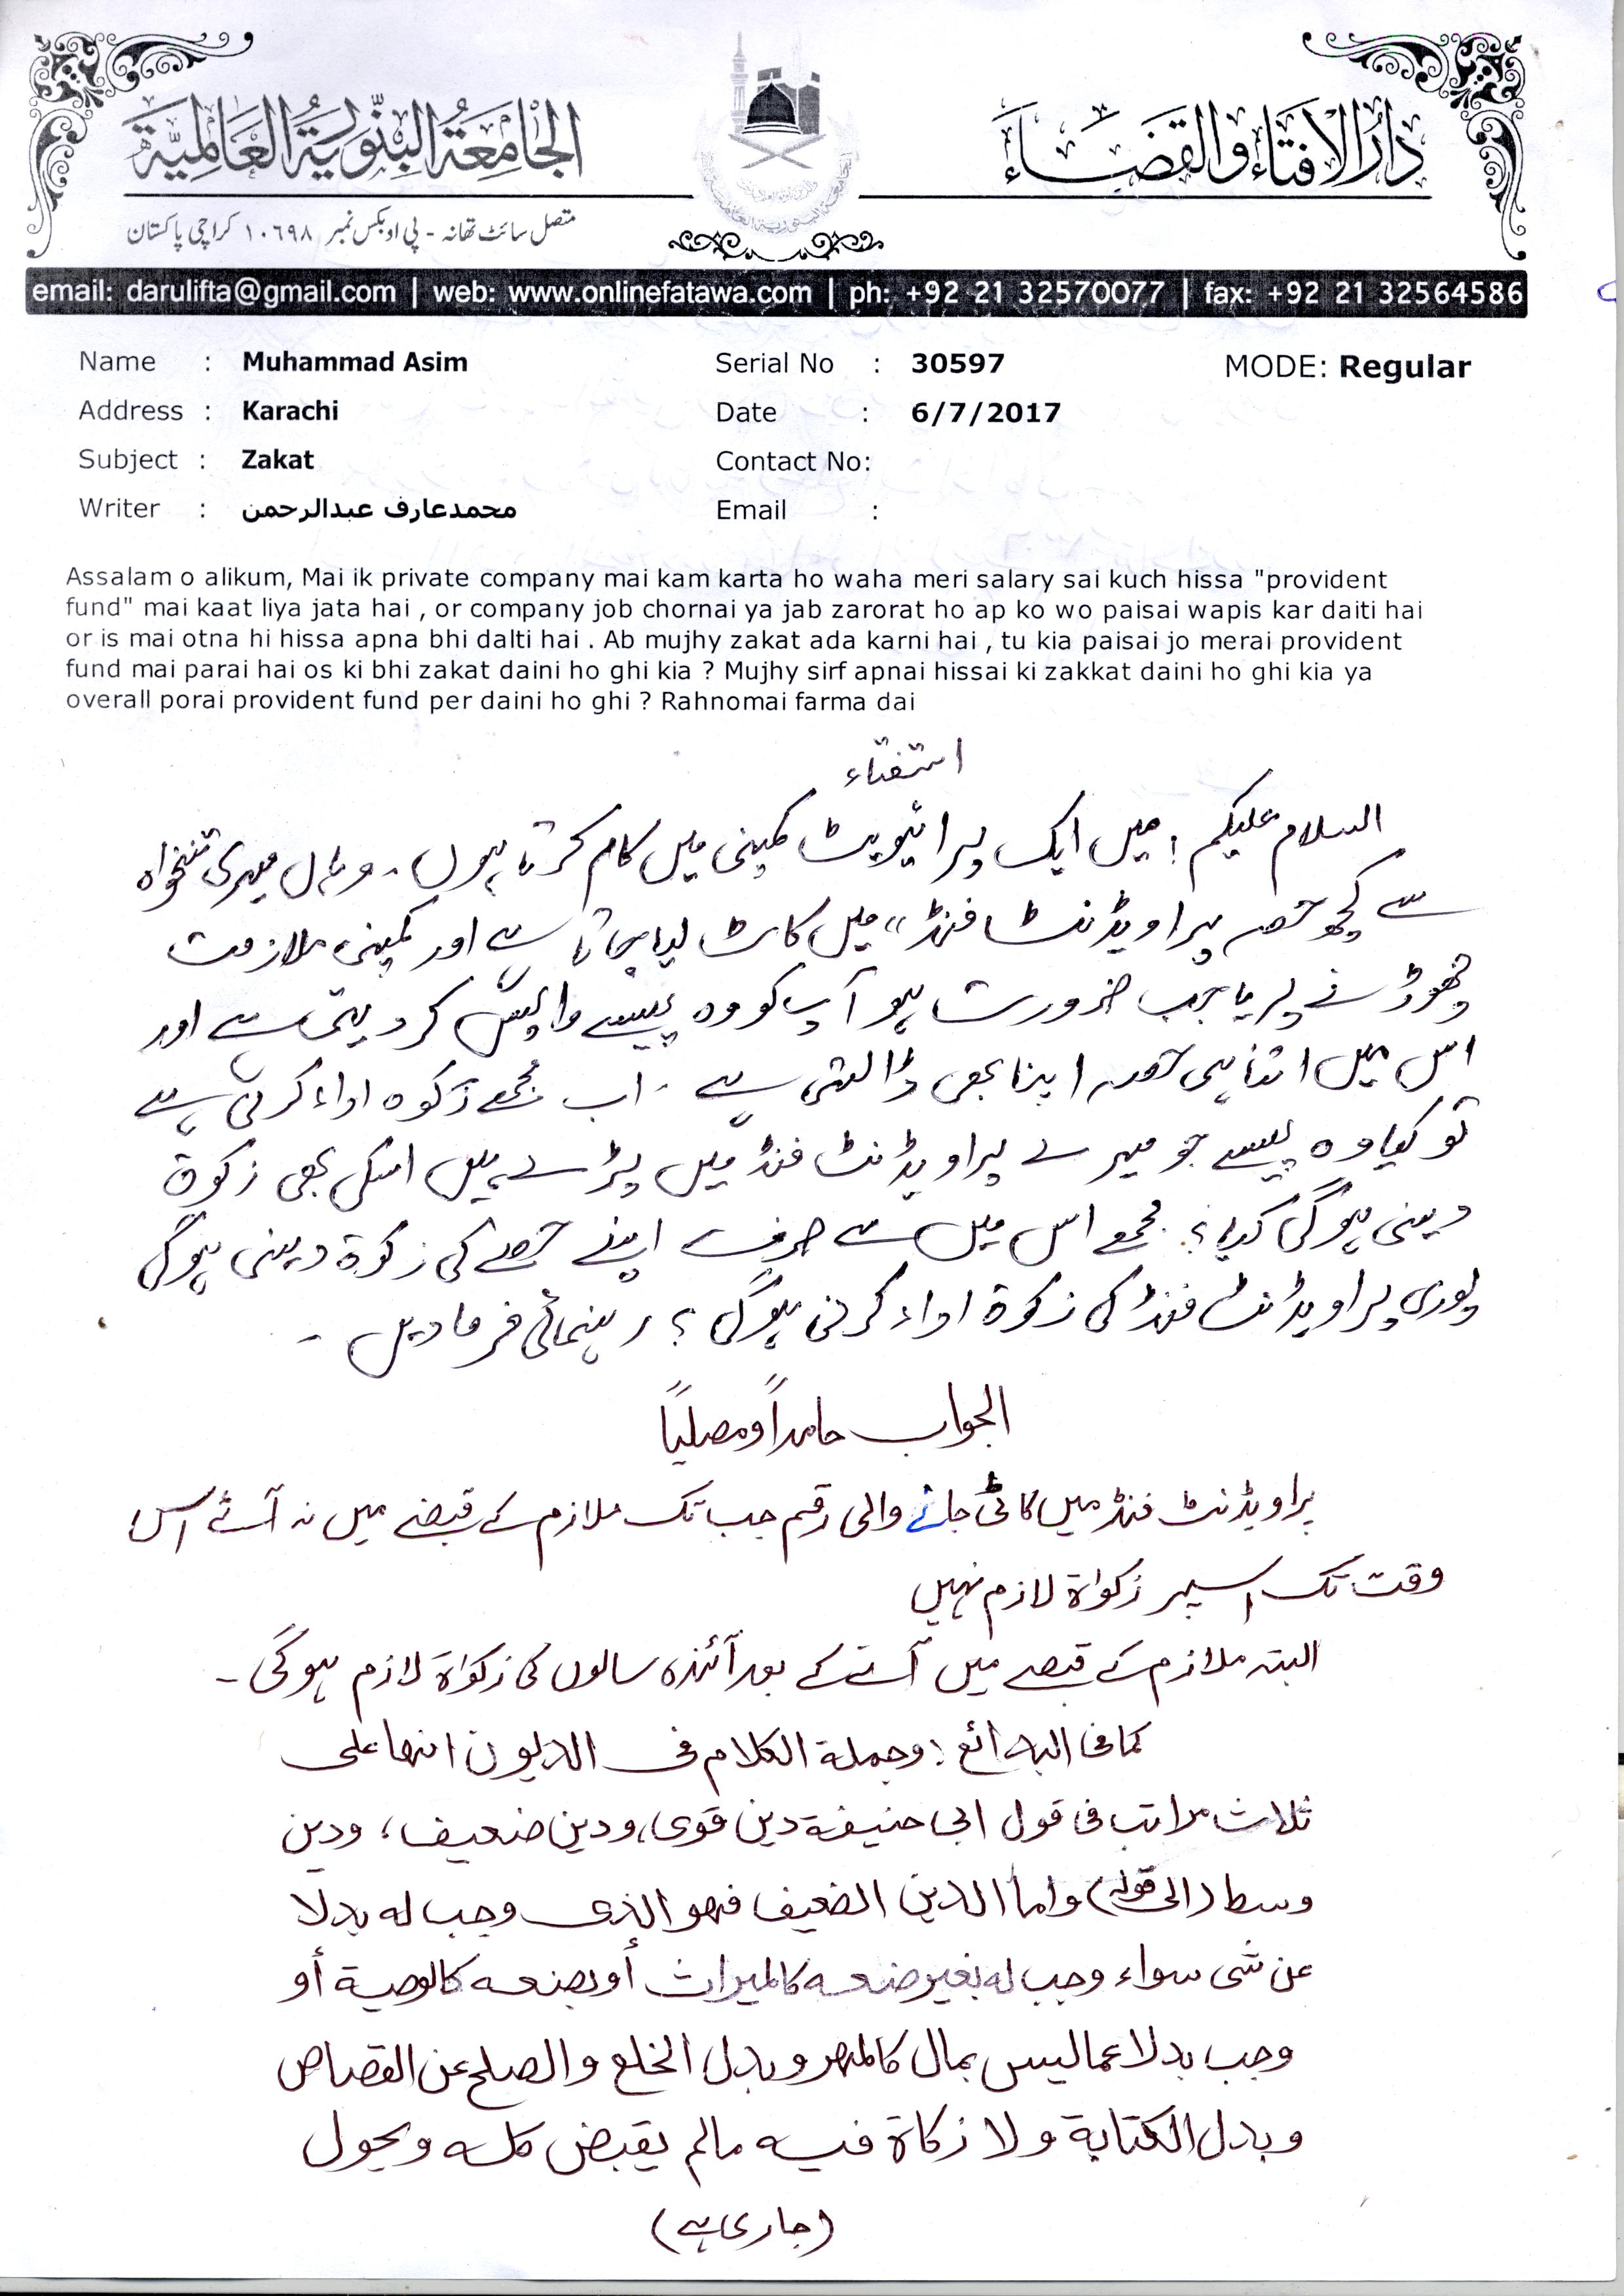 دارالافتاء والقضاء
الجامعة البنورية العالمية
متصل سائٹ تھانہ - پی او بکس نمبر ۱۰۶۹۸ کراچی پاکستان
email: darulifta@gmail.com | web: www.onlinefatawa.com | ph: +92 21 32570077 | fax: +92 21 32564586
Name : Muhammad Asim Serial No : 30597 MODE: Regular
Address : Karachi Date : 6/7/2017
Subject : Zakat Contact No:
Writer : محمدعارف عبدالرحمن Email :
Assalam o alikum, Mai ik private company mai kam karta ho waha meri salary sai kuch hissa "provident
fund" mai kaat liya jata hai , or company job chornai ya jab zarorat ho ap ko wo paisai wapis kar daiti hai
or is mai otna hi hissa apna bhi dalti hai . Ab mujhy zakat ada karni hai , tu kia paisai jo merai provident
fund mai parai hai os ki bhi zakat daini ho ghi kia ? Mujhy sirf apnai hissai ki zakkat daini ho ghi kia ya
overall porai provident fund per daini ho ghi ? Rahnomai farma dai
استفتاء
السلام علیکم ! میں ایک پرائیویٹ کمپنی میں کام کرتا ہوں ۔ وہاں میری تنخواہ
سے کچھ حصہ پراویڈنٹ فنڈ" میں کاٹ لیا جاتا ہے اور کمپنی ملازمت
چھوڑنے پر یا جب ضرورت ہو آپ کو وہ پیسے واپس کر دیتی ہے اور
اس میں اتنا ہی حصہ اپنا بھی ڈالتی ہے ۔ اب مجھے زکوہ اداء کرنی ہے
تو کیا وہ پیسے جو میرے پراویڈنٹ فنڈ میں پڑے ہیں اسکی بھی زکوۃ
دینی ہوگی کیا ؟ مجھے اس میں سے صرف اپنے حصے کی زکوۃ دینی ہوگی
پوری پراویڈنٹ فنڈ کی زکوۃ اداء کرنی ہوگی ؟ رہنمائی فرمادیں ۔
الجواب حامداً ومصلیاً
پراویڈنٹ فنڈ میں کاٹی جانے والی رقم جب تک ملازم کے قبضے میں نہ آئے اس
وقت تک اسپر زکواۃ لازم نہیں
البتہ ملازم کے قبضے میں آنے کے بعد آئندہ سالوں کی زکواۃ لازم ہوگی ۔
کما فی البدائع : وجملة الکلام فی الدیون انھا علی
ثلاث مراتب فی قول ابی حنیفة دین قوی، ودین ضعیف، ودین
وسط (الی قولہ) واما الدین الضعیف فھو الذی وجب له بدلا
عن شیٔ سواء وجب له بغیر صنعه کالمیراث أو بصنعه کالوصیة أو
وجب بدلا عما لیس بمال کالمھر وبدل الخلع والصلح عن القصاص
وبدل الکتابة ولا زکاة فیه مالم یقبض کله ویحول
(جاری ہے)